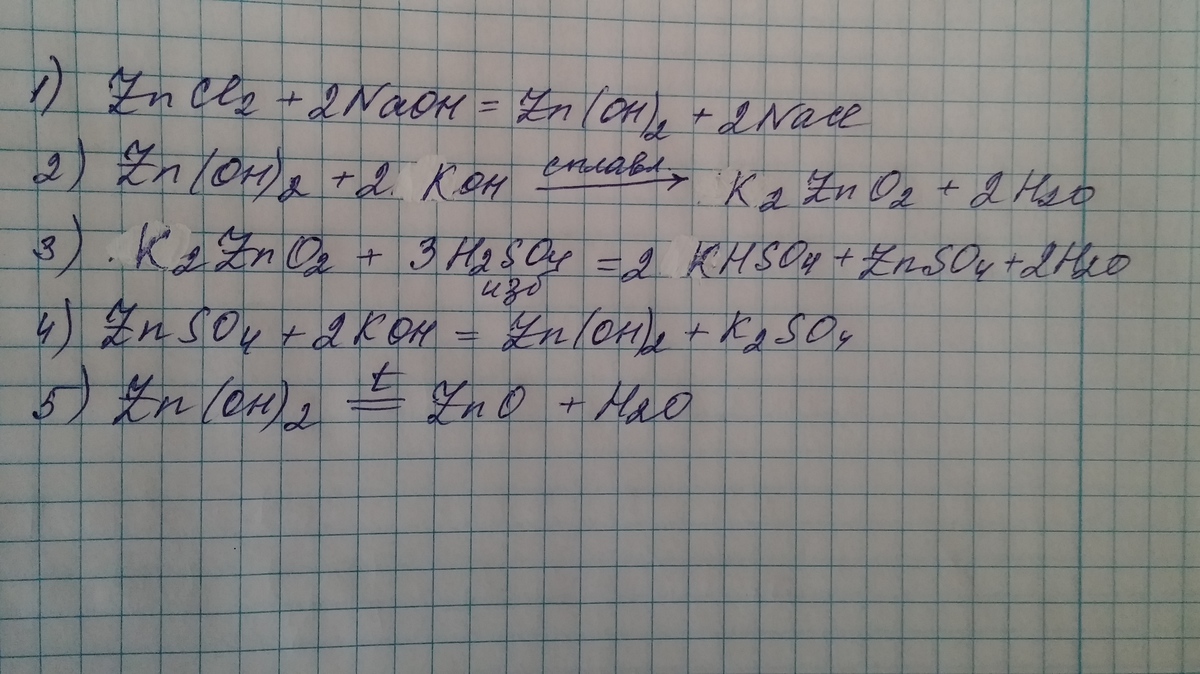 1) ZnCl₂ + 2NaOH = Zn(OH)₂ + 2NaCl
2) Zn(OH)₂ + 2 KOH сплавл. → K₂ZnO₂ + 2H₂O
3) K₂ZnO₂ + 3H₂SO₄ изб = 2 KHSO₄ + ZnSO₄ + 2H₂O
4) ZnSO₄ + 2KOH = Zn(OH)₂ + K₂SO₄
5) Zn(OH)₂ t = ZnO + H₂O